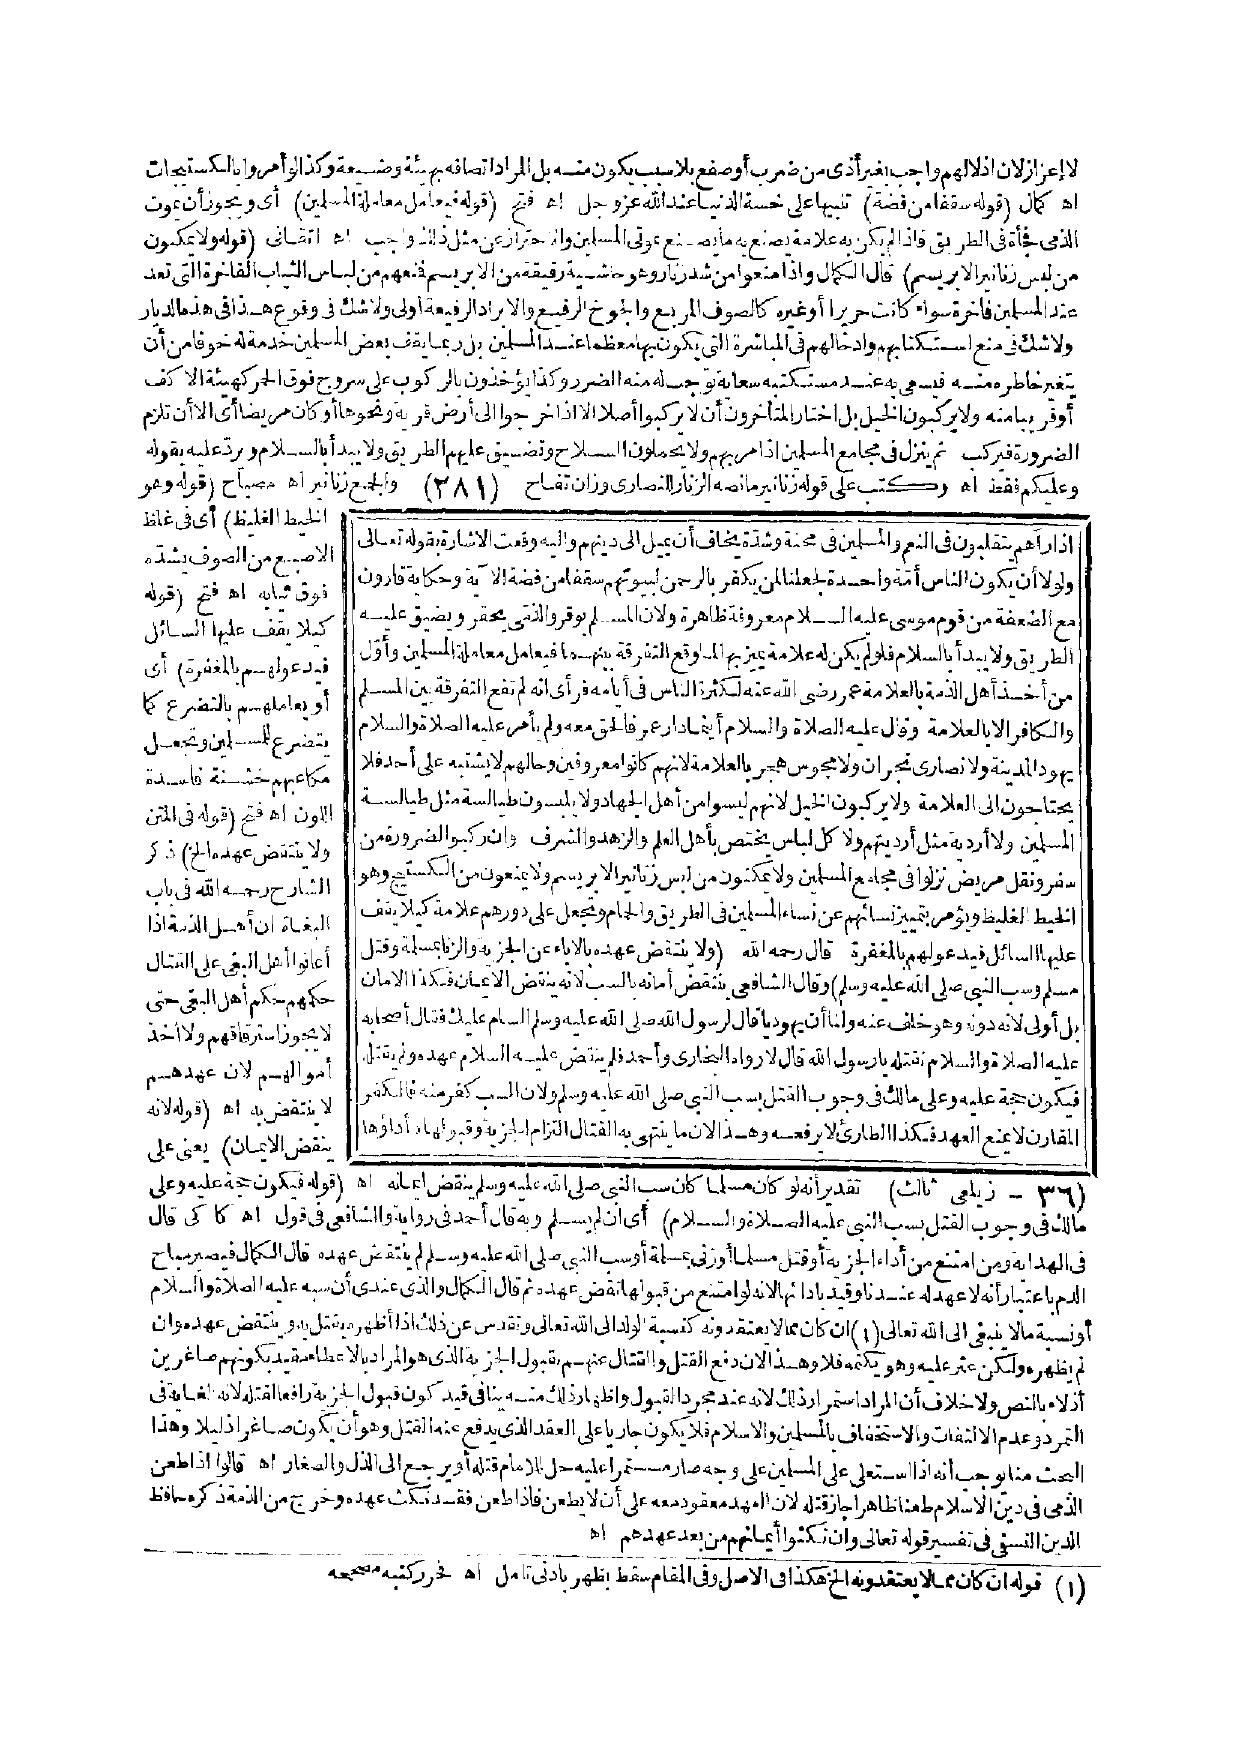 لا إعزاز لان اذلالهم واجب بغير أذى من ضرب أو صفع بلا سبب يكون منه بل المراد اتصافه بهيئة وضيعة وكذا لو أمر وا بالكستيجات
اه كمال (قوله سقفا من فضة) تنبيها على خسة الدنيا عند الله عز وجل اه فتح (قوله فيعامل معاملة المسلمين) أى ويجوز أن يموت
الذمى فجأة فى الطريق فاذا لم يكن به علامة يصنع به ما يصنع بموتى المسلمين والاحتراز عن مثل ذلك واجب اه اتقانى (قوله ولا يمكنون
من لبس زنانير الابريسم) قال الكمال واذا منعوا من شد زنار وهو حاشية رقيقة من الابريسم فمنعهم من لباس الثياب الفاخرة التى تعد
عند المسلمين فاخرة سواء كانت حريرا أو غيره كالصوف المربع والجوخ الرفيع والابراد الرفيعة أولى ولا شك فى وقوع هذا فى هذه الديار
ولا شك فى منع استكتابهم وادخالهم فى المباشرة التى يكون بها معظما عند المسلمين بل ربما يقف بعض المسلمين خدمة له خوفا من أن
يتغير خاطره منه فيسعى به عند مستكتبه سعاية توجب له منه الضرر وكذا يؤخذون بالركوب على سروج فوق الحمر كهيئة الاكف
أو قريبا منه ولا يركبون الخيل بل اختار المتأخرون أن لا يركبوا أصلا الا اذا خرجوا الى أرض قرية ونحوها أو كان مريضا أى الا أن تلزم
الضرورة فيركب ثم ينزل فى مجامع المسلمين اذا مر بهم ولا يحملون السلاح وتضيق عليهم الطريق ولا يبدأ بالسلام و يرد عليه بقوله
وعليكم فقط اه وكتب على قوله زنانير ما نصه الزنار للنصارى وزان تفاح (٢٨١) والجمع زنانير اه مصباح (قوله وهو
الخيط الغليظ) أى فى غلظ
الاصبع من الصوف يشده
فوق ثيابه اه فتح (قوله
كيلا يقف عليها السائل
فيدعو لهم بالمغفرة) أى
أو يعاملهم بالتضرع كما
يتضرع للمسلمين وتجعل
مكاعبهم خشنة فاسدة
اللون اه فتح (قوله فى المتن
ولا ينتقض عهده الخ) ذكر
الشارح رحمه الله فى باب
البغاة ان أهل الذمة اذا
أعانوا أهل البغى على القتال
حكمهم حكم أهل البغى حتى
لا يجوز استرقاقهم ولا أخذ
أموالهم لان عهدهم
لا ينتقض به اه (قوله لانه
ينقض الايمان) يعنى على
اذا رآهم يتقلبون فى النعم والمسلمين فى محنة وشدة يخاف أن يميل الى دينهم واليه وقعت الاشارة بقوله تعالى
ولولا أن يكون الناس أمة واحدة لجعلنا لمن يكفر بالرحمن لبيوتهم سقفا من فضة الآية وحكاية قارون
مع الضعفة من قوم موسى عليه السلام معروفة ظاهرة ولان المسلم يوقر والذمى يحقر ويضيق عليه
الطريق ولا يبدأ بالسلام فلو لم يكن له علامة يميز بها لما وقع التفرقة بينهما فيعامل معاملة المسلمين وأول
من أخذ أهل الذمة بالعلامة عمر رضى الله عنه لكثرة الناس فى أيامه فرأى انه لم تقع التفرقة بين المسلم
والكافر الا بالعلامة وقال عليه الصلاة والسلام أينما دار عمر فالحق معه ولم يأمر عليه الصلاة والسلام
يهود المدينة ولا نصارى نجران ولا مجوس هجر بالعلامة لانهم كانوا معروفين وحالهم لا يشتبه على أحد فلا
يحتاجون الى العلامة ولا يركبون الخيل لانهم ليسوا من أهل الجهاد ولا يلبسون طيالسة مثل طيالسة
المسلمين ولا أردية مثل أرديتهم ولا كل لباس يختص بأهل العلم والزهد والشرف وان ركبوا لضرورة من
سفر ونقل مريض نزلوا فى مجامع المسلمين ولا يمكنون من لبس زنانير الابريسم ولا يمنعون من الكستيج وهو
الخيط الغليظ ويؤمر بتمييز نسائهم عن نساء المسلمين فى الطريق والحمام وتجعل على دورهم علامة كيلا يقف
عليها السائل فيدعو لهم بالمغفرة قال رحمه الله (ولا ينتقض عهده بالاباء عن الجزية والزنا بمسلمة وقتل
مسلم وسب النبى صلى الله عليه وسلم) وقال الشافعى ينتقض أمانه بالسب لانه ينقض الايمان فكذا الامان
بل أولى لانه دونه وهو خلف عنه ولنا أن يهوديا قال لرسول الله صلى الله عليه وسلم السام عليك فقال أصحابه
عليه الصلاة والسلام نقتله يا رسول الله قال لا رواه البخارى وأحمد فلم ينتقض عليه السلام عهده ولم يقتل
فيكون حجة عليه وعلى مالك فى وجوب القتل بسب النبى صلى الله عليه وسلم ولان السب كفر منه فالكفر
المقارن لا يمنع العهد فكذا الطارئ لا يرفعه وهذا لان ما ينتهى به القتال التزام الجزية وقبولها لا أداؤها
(٣٦ - زيلعى ثالث) تقدير أنه لو كان مسلما كان سب النبى صلى الله عليه وسلم ينقض ايمانه اه (قوله فيكون حجة عليه وعلى
مالك فى وجوب القتل بسب النبى عليه الصلاة والسلام) أى ان لم يسلم وبه قال أحمد فى رواية والشافعى فى قول اه كاكى قال
فى الهداية ومن امتنع من أداء الجزية أو قتل مسلما أو زنى بمسلمة أو سب النبى صلى الله عليه وسلم لم ينتقض عهده قال الكمال فيصير مباح
الدم باعتبار أنه لا عهد له عندنا وقيد بادائها لانه لو امتنع من قبولها نقض عهده ثم قال الكمال والذى عندى أن سبه عليه الصلاة والسلام
أو نسبة ما لا ينبغى الى الله تعالى (١) ان كان مما لا يعتقدونه كنسبة الولد الى الله تعالى وتقدس عن ذلك اذا أظهره يقتل به وينتقض عهده وان
لم يظهره ولكن عثر عليه وهو يكتمه فلا وهذا لان دفع القتل والقتال عنهم بقبول الجزية الذى هو المراد بالاعطاء مقيد بكونهم صاغرين
أذلاء بالنص ولا خلاف أن المراد استمرار ذلك لانه عند مجرد القبول واظهار ذلك منه ينافى قيد كون قبول الجزية رافعا لقتله لانه الغاية فى
التمرد وعدم الالتفات والاستخفاف بالمسلمين والاسلام فلا يكون جاريا على العقد الذى يدفع عنه القتل وهو أن يكون صاغرا ذليلا وهذا
البحث منا يوجب أنه اذا استعلى على المسلمين على وجه صار مستمرا عليه حل للامام قتله أو يرجع الى الذل والصغار اه قالوا اذا طعن
الذمى فى دين الاسلام طعنا ظاهرا جاز قتله لان العهد معقود معه على أن لا يطعن فاذا طعن فقد نكث عهده وخرج من الذمة ذكره حافظ
الدين النسفى فى تفسير قوله تعالى وان نكثوا أيمانهم من بعد عهدهم اه
(١) قوله ان كان مما لا يعتقدونه الخ هكذا فى الاصل وفى المقام سقط يظهر بادنى تأمل اه فحرر كتبه مصححه